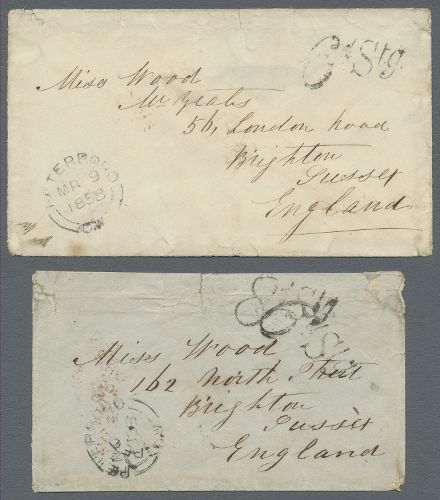 6d Stg
Miss Wood
Mr Yeats
56, London road
Brighton
Sussex
England
PETERBORO
MR 9
1858
C.W
8d Stg
6 Stg
Miss Wood
162 North Street
Brighton
Sussex
England